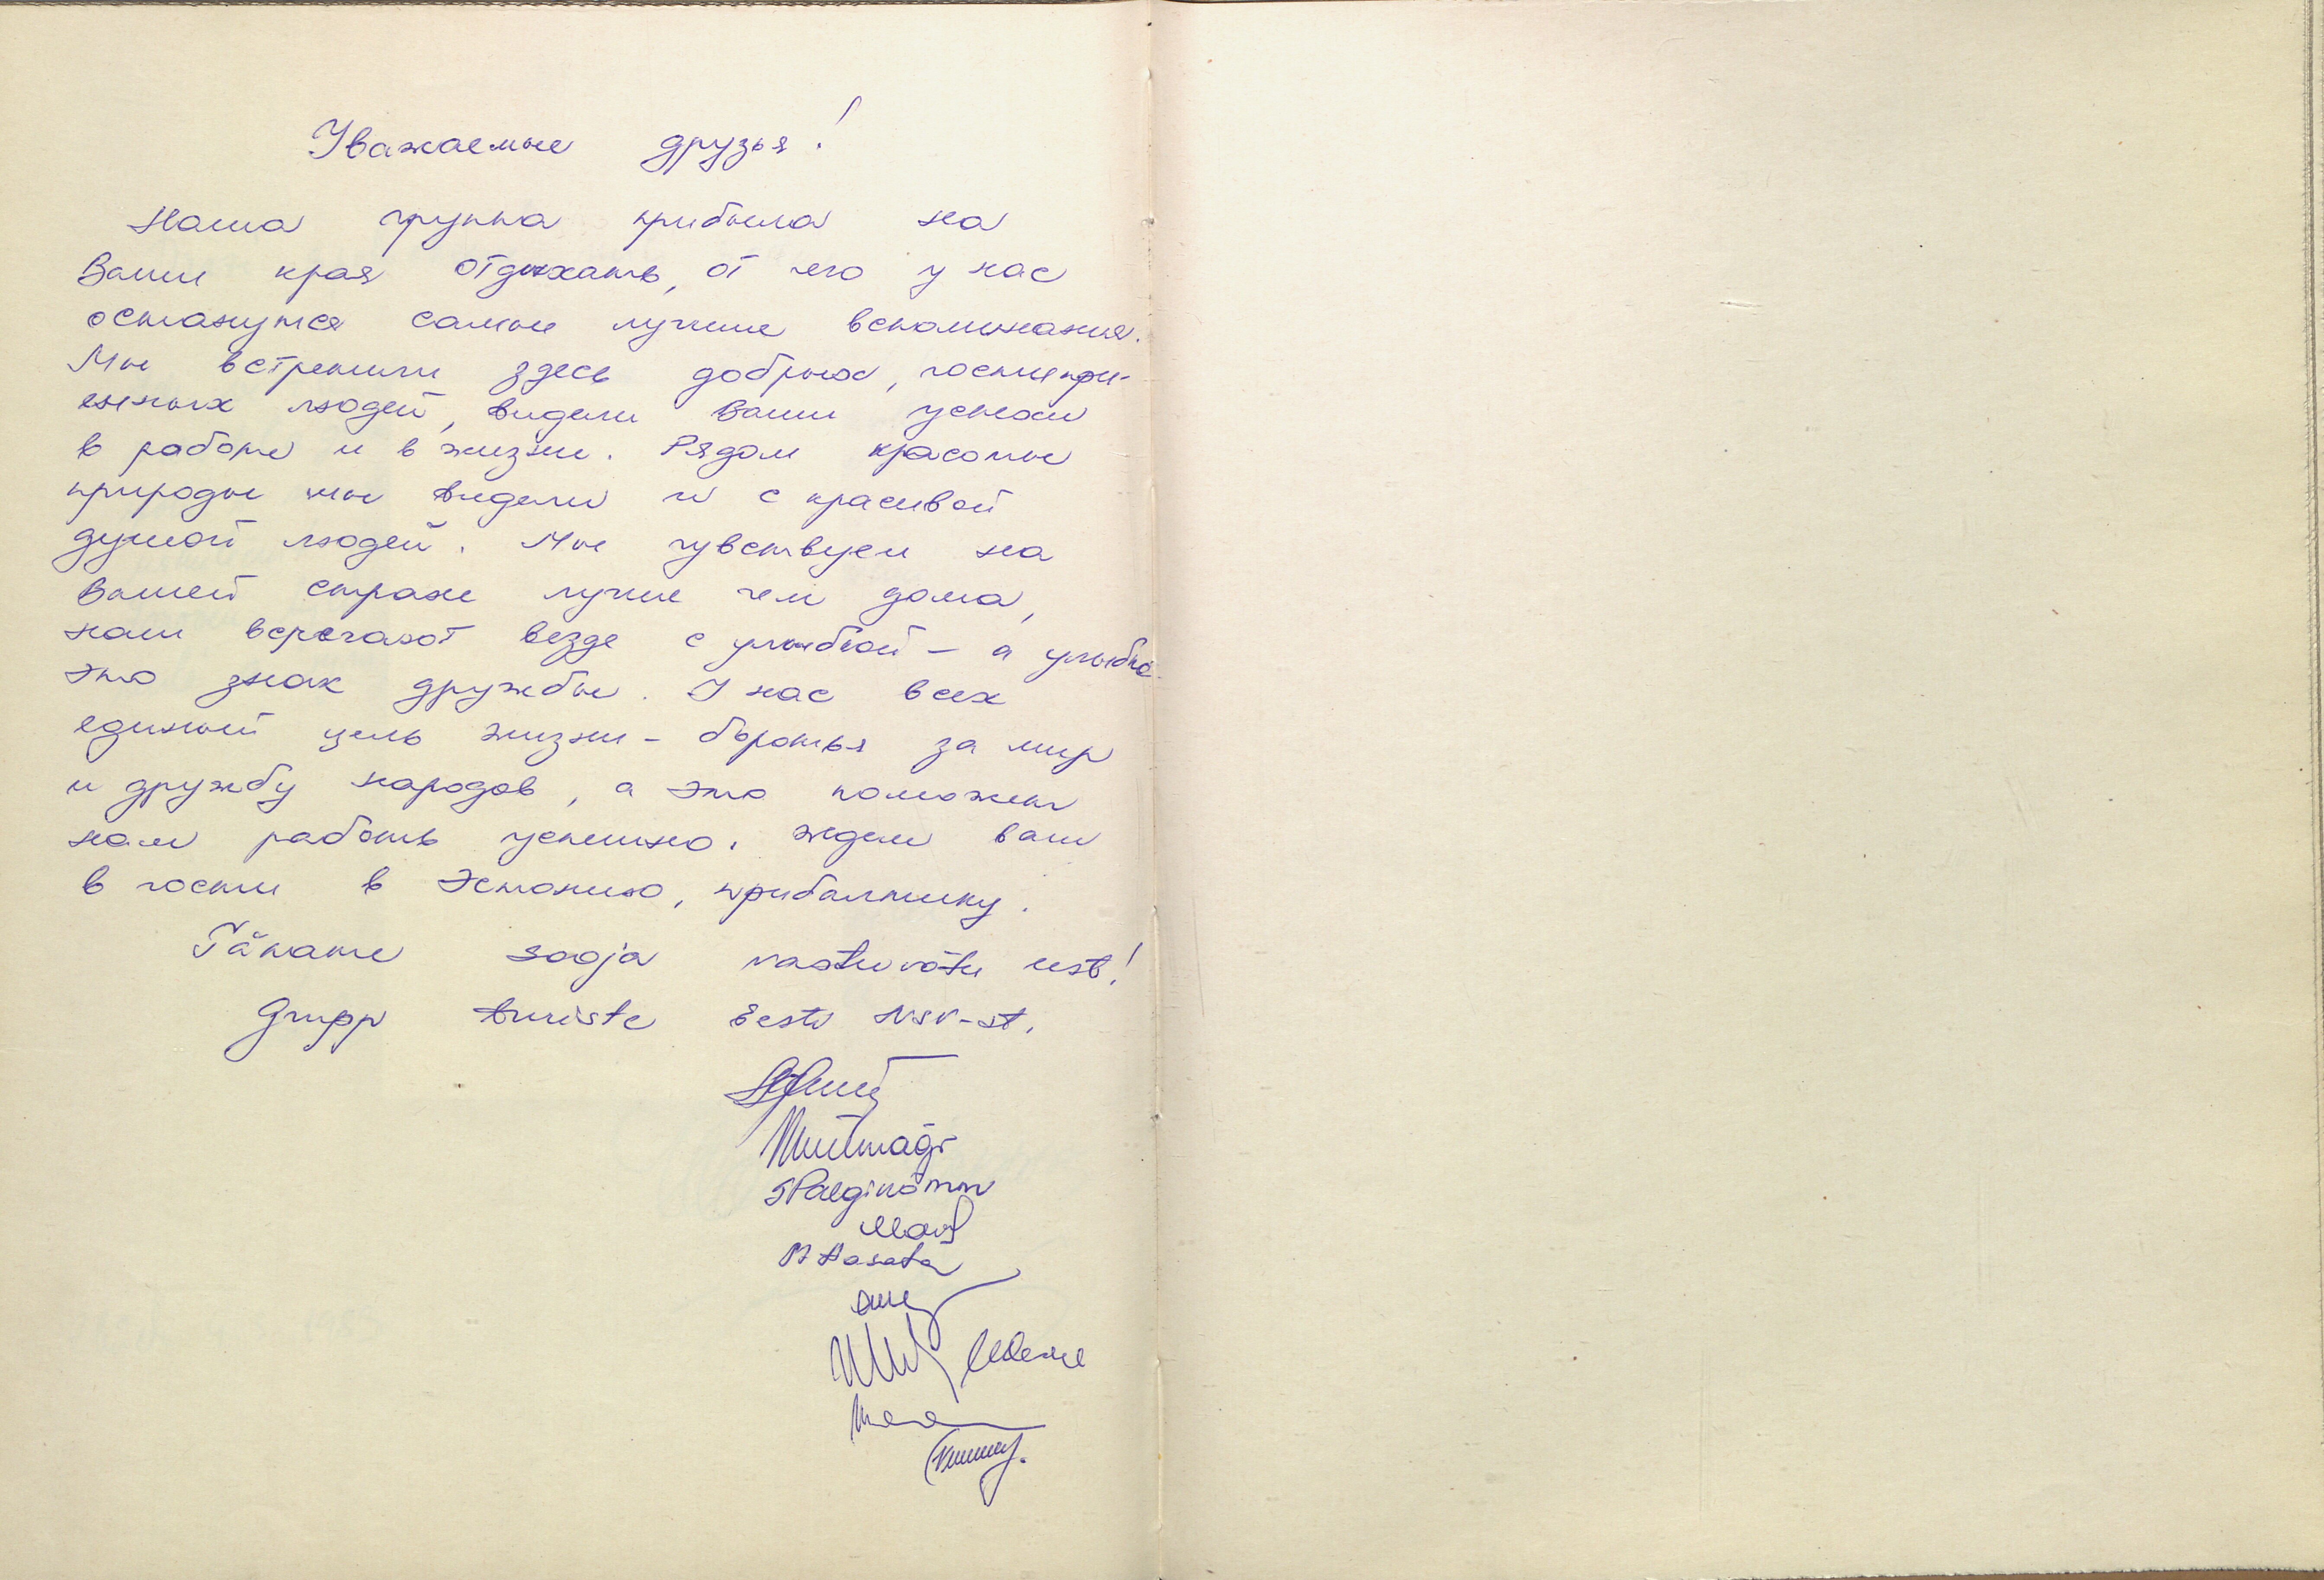 Уважаемые друзья!
Наша группа прибыла на
Ваши края отдыхать, от чего у нас
останутся самые лучшие вспоминания.
Мы встретили здесь добрых, гостипри-
емных людей, видели Ваши успехи
в работе и в жизни. Рядом красоты
природы мы видели и с красивой
душой людей. Мы чувствуем на
Вашей стране лучше чем дома,
нам встречают везде с улыбкой – а улыбка
это знак дружбы. У нас всех
единый цель жизни – боротья за мир
и дружбу народов, а это поможет
нам работь успешно. Ждем вам
в гости в Эстонию, прибалтику.
Täname sooja vastuvõtu eest!
Grupp turiste Eesti NSV-st.